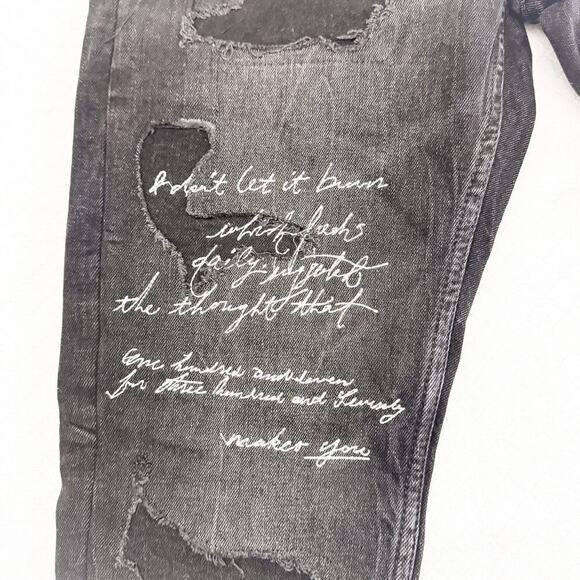 don't let it burn
which
daily
the thought that
One hundred and seven
for three hundred and seventy
makes you